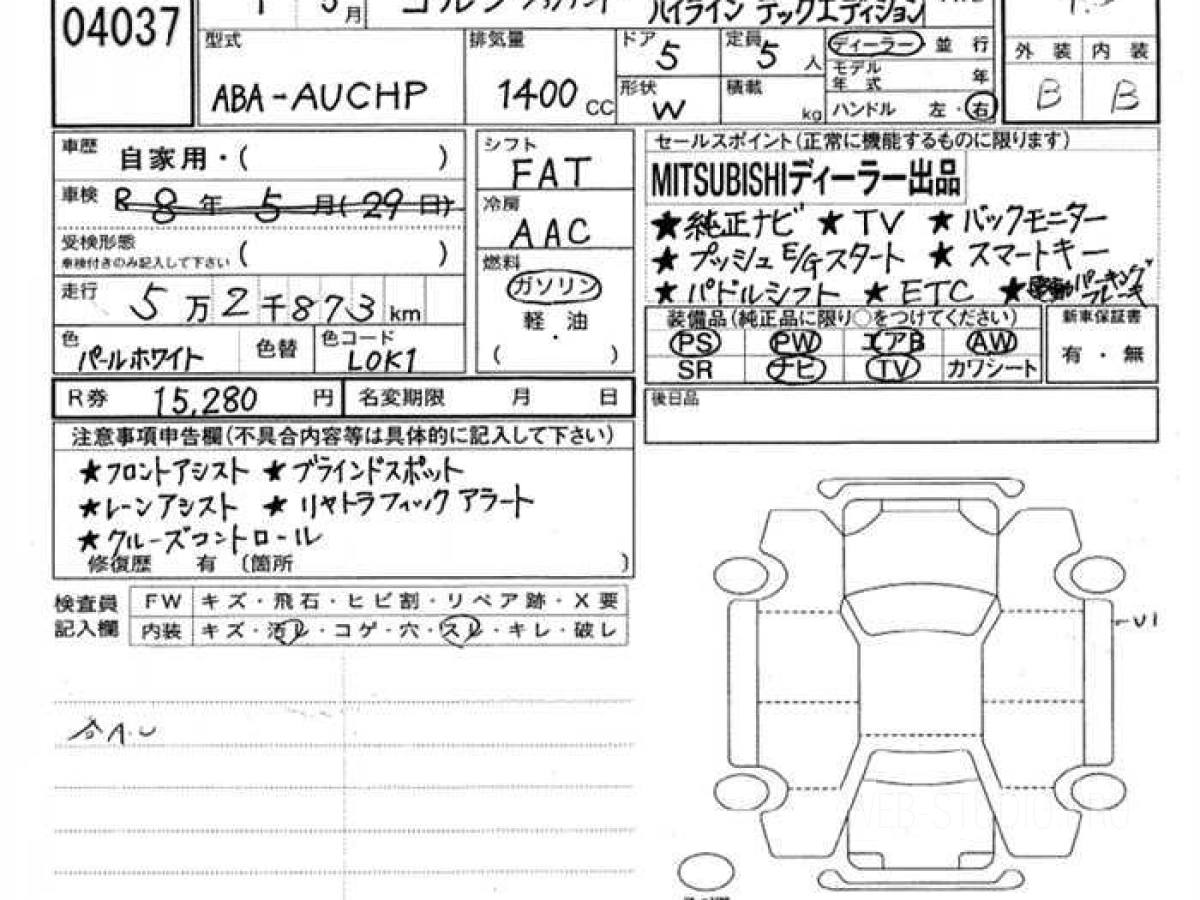 04037
5月
ハイライン テックエディション
型式 ABA-AUCHP
排気量 1400 CC
ドア 5
定員 5 人
形状 W
積載 kg
ディーラー 並 行
モデル年式 年
ハンドル 左・右
外 装 内 装
B B
車歴 自家用・( )
車検 R 8年 5月(29日)
受検形態 ( )
車検付きのみ記入して下さい
走行 5万2千873km
色 パールホワイト 色替 色コード LOK1
シフト FAT
冷房 AAC
燃料
ガソリン
軽・油
( )
セールスポイント(正常に機能するものに限ります)
MITSUBISHIディーラー出品
★純正ナビ ★TV ★バックモニター
★プッシュE/Gスタート ★スマートキー
★パドルシフト ★ETC ★電動パーキングブレーキ
装備品(純正品に限り○をつけてください)
PS PW エアB AW
SR ナビ TV カワシート
新車保証書
有・無
R券 15,280 円 名変期限 月 日
後日品
注意事項申告欄(不具合内容等は具体的に記入して下さい)
★フロントアシスト ★ブラインドスポット
★レーンアシスト ★リヤトラフィックアラート
★クルーズコントロール
修復歴 有 〔箇所 〕
検査員記入欄
FW キズ・飛石・ヒビ割・リペア跡・X要
内装 キズ・汚レ・コゲ・穴・スレ・キレ・破レ
U1